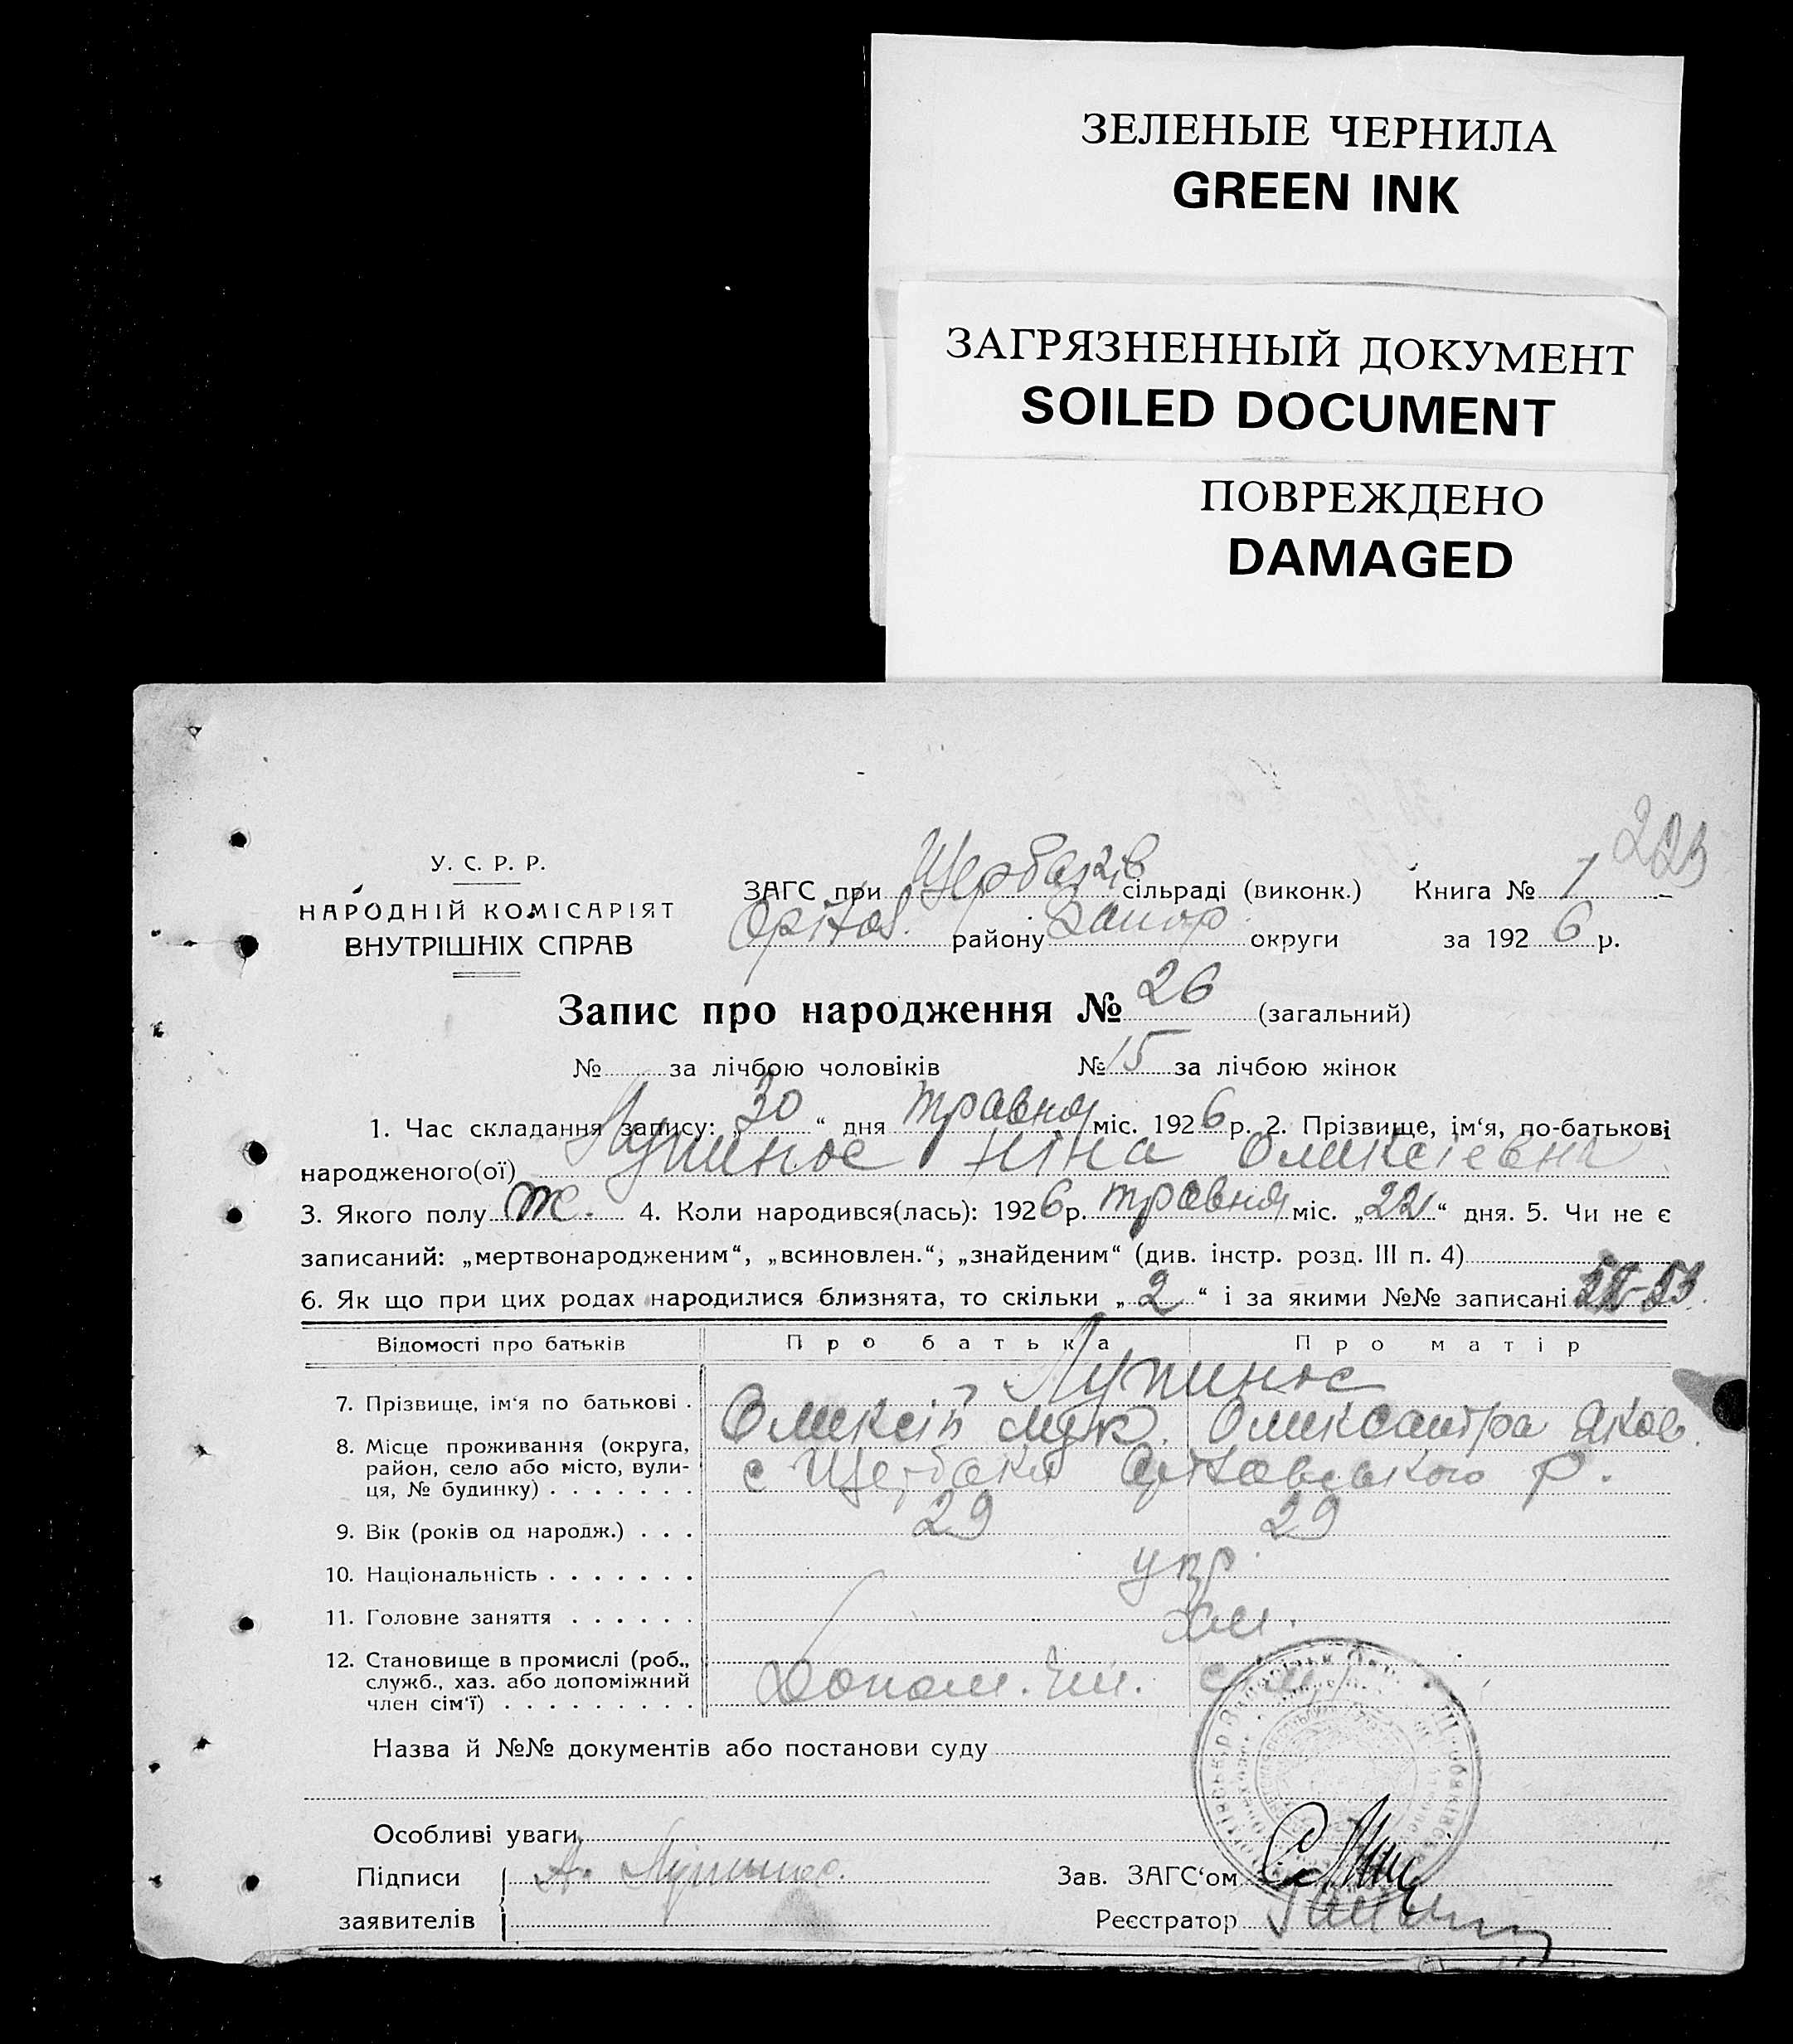 ЗЕЛЕНЫЕ ЧЕРНИЛА
GREEN INK
ЗАГРЯЗНЕННЫЙ ДОКУМЕНТ
SOILED DOCUMENT
ПОВРЕЖДЕНО
DAMAGED
223
У. С. Р. Р.
НАРОДНІЙ КОМІСАРІЯТ
ВНУТРІШНІХ СПРАВ
ЗАГС при Щербаків сільраді (виконк.) Книга № 1
Оріхов. району Запор. округи за 1926 р.
Запис про народження № 26 (загальний)
№ за лічбою чоловіків № 15 за лічбою жінок
1. Час складання запису: „30“ дня травня міс. 1926 р. 2. Прізвище, ім‘я, по-батькові
народженого(ої) Лупинос Ніна Олексіевна
3. Якого полу ж. 4. Коли народився(лась): 1926 р. травня міс. „22“ дня. 5. Чи не є
записаний: „мертвонародженим“, „всиновлен.“, „знайденим“ (див. інстр. розд. III п. 4)
6. Як що при цих родах народилися близнята, то скільки „2“ і за якими №№ записані
Відомості про батьків Про батька Про матір
Лупинос
7. Прізвище, ім‘я по батькові . Олексій Лук. Олександра Яков.
8. Місце проживання (округа, район, село або місто, вулиця, № будинку) . . . . . . . с Щербаки Оріховського р.
9. Вік (років од народж.) . . . 29 29
10. Національність . . . . . . . укр.
11. Головне заняття . . . . . . хл.
12. Становище в промислі (роб., служб., хаз. або допоміжний член сім‘ї) . . . . . . . . . Допом. чл. сім‘ї
Назва й №№ документів або постанови суду
Особливі уваги
Підписи А. Лупинос. Зав. ЗАГС‘ом
заявителів Реєстратор